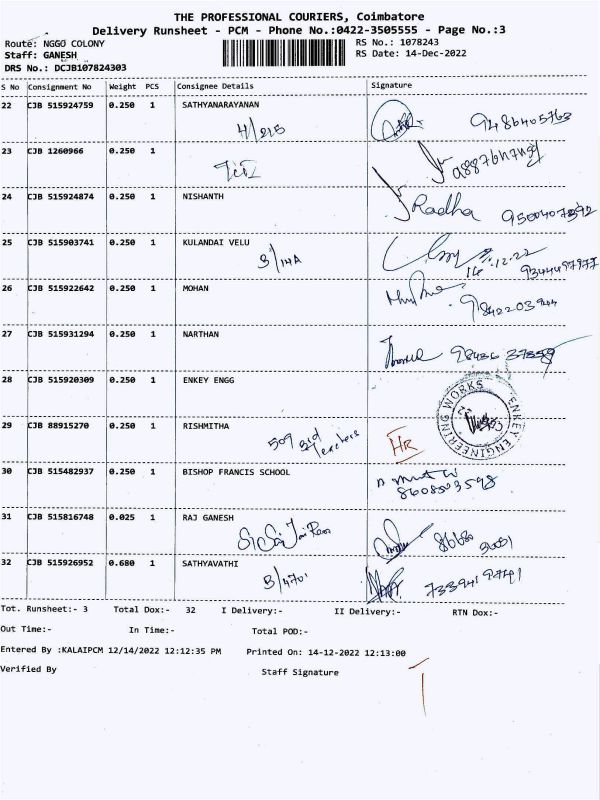 THE PROFESSIONAL COURIERS, Coimbatore
Delivery Runsheet - PCM - Phone No.:0422-3505555 - Page No.:3
Route: NGGO COLONY RS No.: 1078243
Staff: GANESH RS Date: 14-Dec-2022
DRS No.: DCJB107824303
S No Consignment No Weight PCS Consignee Details Signature
22 CJB 515924759 0.250 1 SATHYANARAYANAN
4/215 9486405763
23 CJB 1260966 0.250 1
24 CJB 515924874 0.250 1 NISHANTH
Radha
25 CJB 515903741 0.250 1 KULANDAI VELU
3/14A 14.12.22
26 CJB 515922642 0.250 1 MOHAN
27 CJB 515931294 0.250 1 NARTHAN
28 CJB 515920309 0.250 1 ENKEY ENGG
ENKEY ENGINEERING WORKS
29 CJB 88915270 0.250 1 RISHMITHA
509 HR
30 CJB 515482937 0.250 1 BISHOP FRANCIS SCHOOL
8608503598
31 CJB 515816748 0.025 1 RAJ GANESH
32 CJB 515926952 0.680 1 SATHYAVATHI
Tot. Runsheet:- 3 Total Dox:- 32 I Delivery:- II Delivery:- RTN Dox:-
Out Time:- In Time:- Total POD:-
Entered By :KALAIPCM 12/14/2022 12:12:35 PM Printed On: 14-12-2022 12:13:00
Verified By Staff Signature